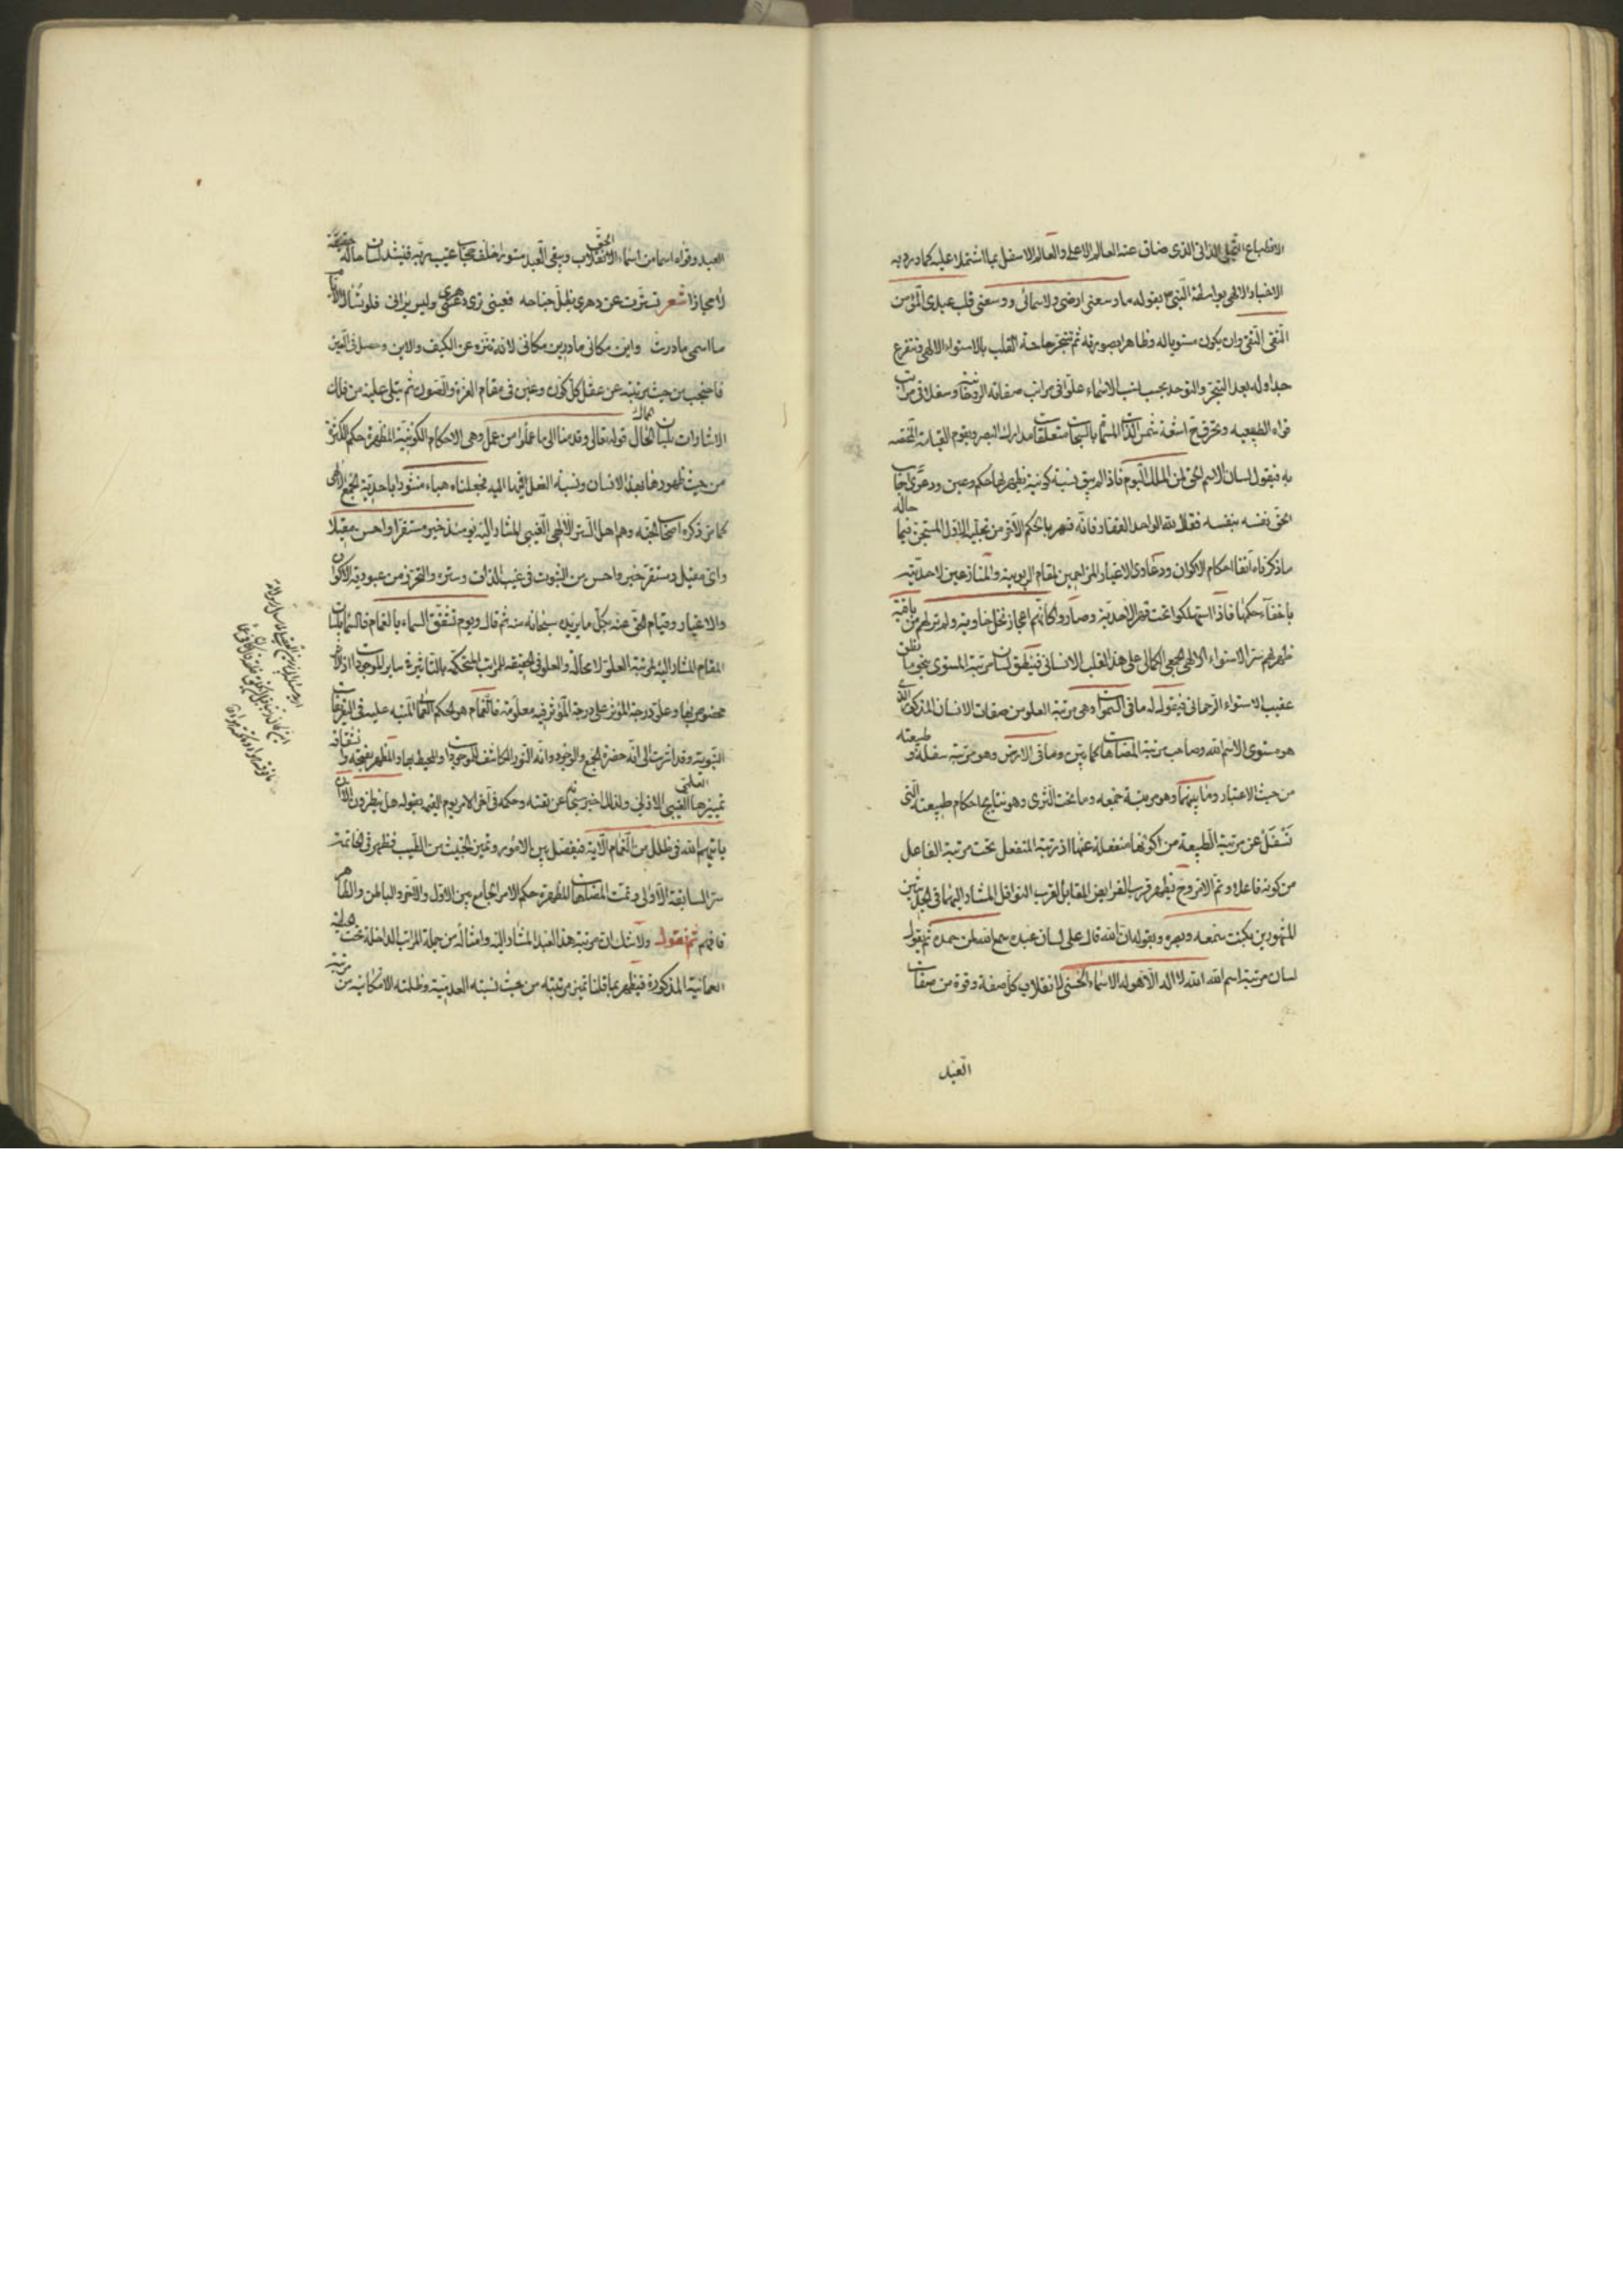 الانطباع التجلى الذاتى الذى ضاق عنه العالم الاعلى والعالم الاسفل بما اشتملا عليه كما ورد به
الاخبار الالهى بواسطة النبى بقوله ما وسعنى ارضى ولا سمائى ووسعنى قلب عبدى المؤمن
التقى النقى وان يكون مستويا له وظاهرا بصورته ثم تتبحر ساحة القلب بالاستواء الالهى فتتفرع
جداوله بعد التبحر والتوحد بحسب نسب الاسماء علوا فى مراتب صفاته الروحانية وسفلا فى مراتب
قواه الطبيعيه وتحرق ح اشعة شمس الذات المسماة بالسبحات متعلقات مدارك البصر ويقوم القيامة المختصة
به فيقول لسان الاسم الحق لمن الملك اليوم فاذا لم يبق نسبة كونية يظهر لها حكم وعين ودعوى اجاب
الحق نفسه بنفسه فقال لله الواحد القهار فانه قهر بالحكم الآخر من تجليه الاول المستجن فيما حاله
ما ذكرناه آنفا احكام الاكوان ودعاوى الاغيار المزاحمين لمقام الربوبية والمنازعين لاحديته
باخفاء حكمها فاذا استهلكوا تحت قهر الاحدية وصاروا كانهم اعجاز نخل خاوية ولم تر لهم من باقية
ظهر لهم سر الاستواء الالهى الجمعى الكمالى على هذا القلب الانسانى فينطق لسان مرتبة المستوى بنحو ما نطق
عقيب الاستواء الرحمانى فيقول له ما فى السموات وهى مرتبة العلو من صفات الانسان المذكور الذى
هو مستوى الاسم الله وصاحب مرتبة المضاهاة كما بين وما فى الارض وهو مرتبة سفله و طبيعته
من حيث الاعتبار وما بينهما وهو مرتبة جمعه وما تحت الثرى وهو نتايج احكام طبيعته التى
تسفل عن مرتبة الطبيعة من كونها منفعلة عنها اذ رتبة المنفعل تحت مرتبة الفاعل
من كونه فاعلا وتم الامر وح يظهر قرب الفرايض المقابل لقرب النوافل المشار اليهما فى الحديثين
المشهورين بكنت سمعه وبصره وبقوله ان الله قال على لسان عبده سمع الله لمن حمده ثم يقول
لسان مرتبة اسم الله الله لا اله الا هو له الاسماء الحسنى لانقلاب كل صفة وقوة من صفات
العبد
العبد وقواه اسما من اسماء الحق لانقلاب ويبقى العبد مستورا خلف حجاب غيب ربه فينشد لسان حاله حقيقة
لا مجازا شعر تسترت عن دهرى بظل جناحه فعينى ترى دهرى وليس يرانى فلو تسأل الايام
ما اسمى ما درت واين مكانى ما درين مكانى لانه تنزه عن الكيف والاين وحصل فى العين
فاحتجب من حيث مرتبته عن عقل كل كون وعين فى مقام العزة والصون ثم يتلى عليه من تلك
الاشارات بلسان الحال قوله تعالى وقدمنا الى ما عملوا من عمل وهى الاحكام الكونية المظهرة حكم الكثرة
من حيث ظهورها بهذا الانسان ونسبة الفعل فيها اليه فجعلناه هباء منثورا باحدية الجمع الالهى
كما مر ذكره اصحاب الجنة وهم اهل الستر الالهى الغيبى المشار اليه يومئذ خير مستقرا واحسن مقيلا
واى مقيل ومستقر خير واحسن من الثبوت فى غيب الذات وستره والتحرز من عبودية الاكوان
والاغيار وقيام الحق عنه بكل ما يريده سبحانه منه ثم قال ويوم تشقق السماء بالغمام فالسماء بلسان
المقام المشار اليه لمرتبة العلو لا محالة والعلو فى الحقيقه للمراتب المتحكمة بالتأثير فى ساير الموجودات
خصوصيتها وعلو درجة المؤثر على درجة المؤثر فيه معلومة فالغمام هو الحكم العمائى المنبه عليه فى التعريفات
النبوية وقد اشرت الى انه حضرة الجمع والوجود وانه النور الكاشف للموجودات والمحيط بها والمظهر بفتحه وانشقاقه
تميزها العلمى الغيبى الازلى ولذلك اخبر سبحانه عن نفسه وحكمه فى آخر الامر يوم القيمة بقوله هل ينظرون الا ان
ياتيهم الله فى ظلل من الغمام الآية فيفصل بين الامور وتميز الخبيث من الطيب فظهر فى الخاتمة
سر السابقة الاولى وتمت المضاهاة المظهرة حكم الامر الجامع بين الاول والآخر والباطن والظاهر
فافهم ثم نقول ولا شك ان مرتبة هذا العبد المشار اليه وامثاله من جملة المراتب الداخلة تحت حيطة
العمائية المذكورة فيظهر بما قلنا تميز مرتبته من حيث نسبته العدمية وظلمته الامكانية من مرتبة